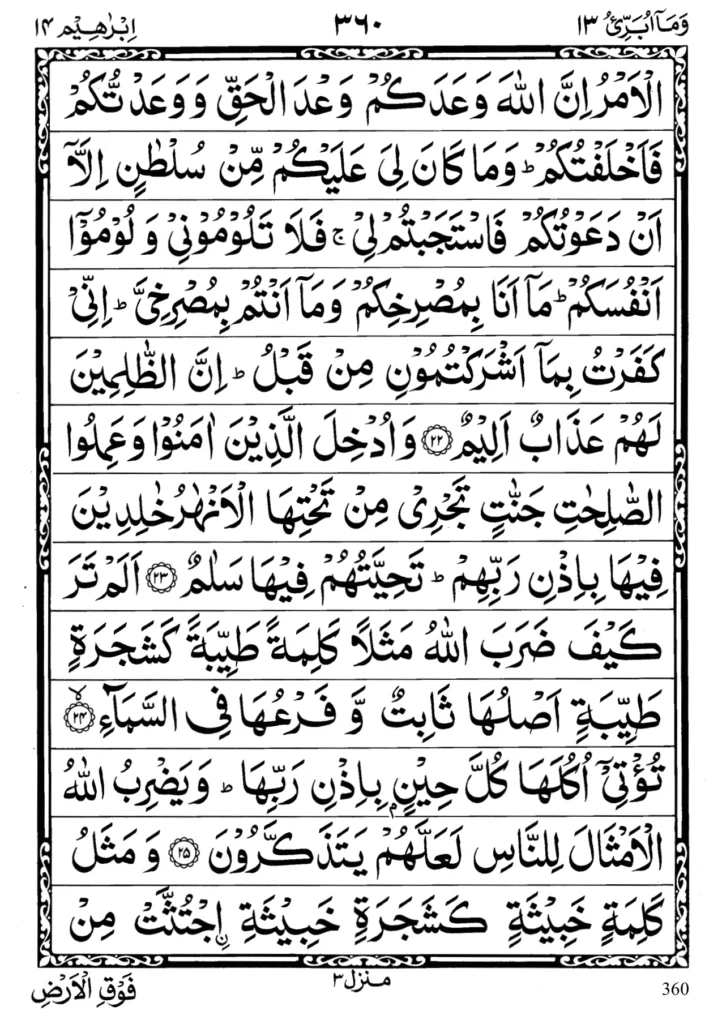 وَمَآ اُبَرِّئُ ١٣ ٣٦٠ اِبْرٰهِيْم ١٤
الْاَمْرُ اِنَّ اللّٰهَ وَعَدَكُمْ وَعْدَ الْحَقِّ وَ وَعَدْتُّكُمْ
فَاَخْلَفْتُكُمْ ؕ وَمَا كَانَ لِىَ عَلَيْكُمْ مِّنْ سُلْطٰنٍ اِلَّآ
اَنْ دَعَوْتُكُمْ فَاسْتَجَبْتُمْ لِىْ ۚ فَلَا تَلُوْمُوْنِىْ وَ لُوْمُوْۤا
اَنْفُسَكُمْ ؕ مَآ اَنَا بِمُصْرِخِكُمْ وَمَآ اَنْتُمْ بِمُصْرِخِىَّ ؕ اِنِّىْ
كَفَرْتُ بِمَآ اَشْرَكْتُمُوْنِ مِنْ قَبْلُ ؕ اِنَّ الظّٰلِمِيْنَ
لَهُمْ عَذَابٌ اَلِيْمٌ ﴿۲۲﴾ وَاُدْخِلَ الَّذِيْنَ اٰمَنُوْا وَعَمِلُوا
الصّٰلِحٰتِ جَنّٰتٍ تَجْرِىْ مِنْ تَحْتِهَا الْاَنْهٰرُ خٰلِدِيْنَ
فِيْهَا بِاِذْنِ رَبِّهِمْ ؕ تَحِيَّتُهُمْ فِيْهَا سَلٰمٌ ﴿۲۳﴾ اَلَمْ تَرَ
كَيْفَ ضَرَبَ اللّٰهُ مَثَلًا كَلِمَةً طَيِّبَةً كَشَجَرَةٍ
طَيِّبَةٍ اَصْلُهَا ثَابِتٌ وَّ فَرْعُهَا فِى السَّمَآءِ ۙ﴿۲۴﴾
تُؤْتِىْۤ اُكُلَهَا كُلَّ حِيْنٍۢ بِاِذْنِ رَبِّهَا ؕ وَيَضْرِبُ اللّٰهُ
الْاَمْثَالَ لِلنَّاسِ لَعَلَّهُمْ يَتَذَكَّرُوْنَ ﴿۲۵﴾ وَ مَثَلُ
كَلِمَةٍ خَبِيْثَةٍ كَشَجَرَةٍ خَبِيْثَةِ ۨاجْتُثَّتْ مِنْ
فَوْقِ الْاَرْضِ منزل ٣ 360